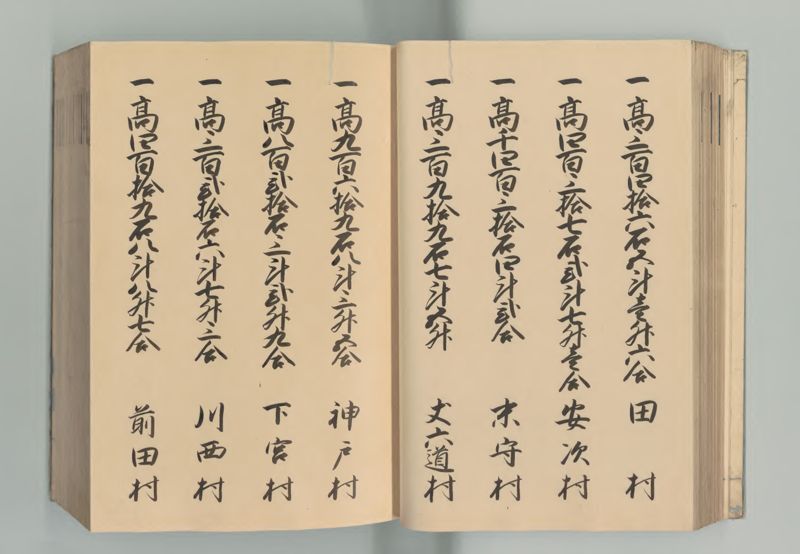 一高三百四拾六石五斗壱升六合 田村
一高四百三拾七石弐斗七升壱合 安次村
一高千四百三拾石四斗弐合 末守村
一高三百九拾九石七斗五升 丈六道村
一高九百六拾九石八斗三升五合 神戸村
一高八百弐拾石三斗弐升九合 下宮村
一高三百弐拾石六斗七升三合 川西村
一高四百拾九石八斗八升七合 前田村